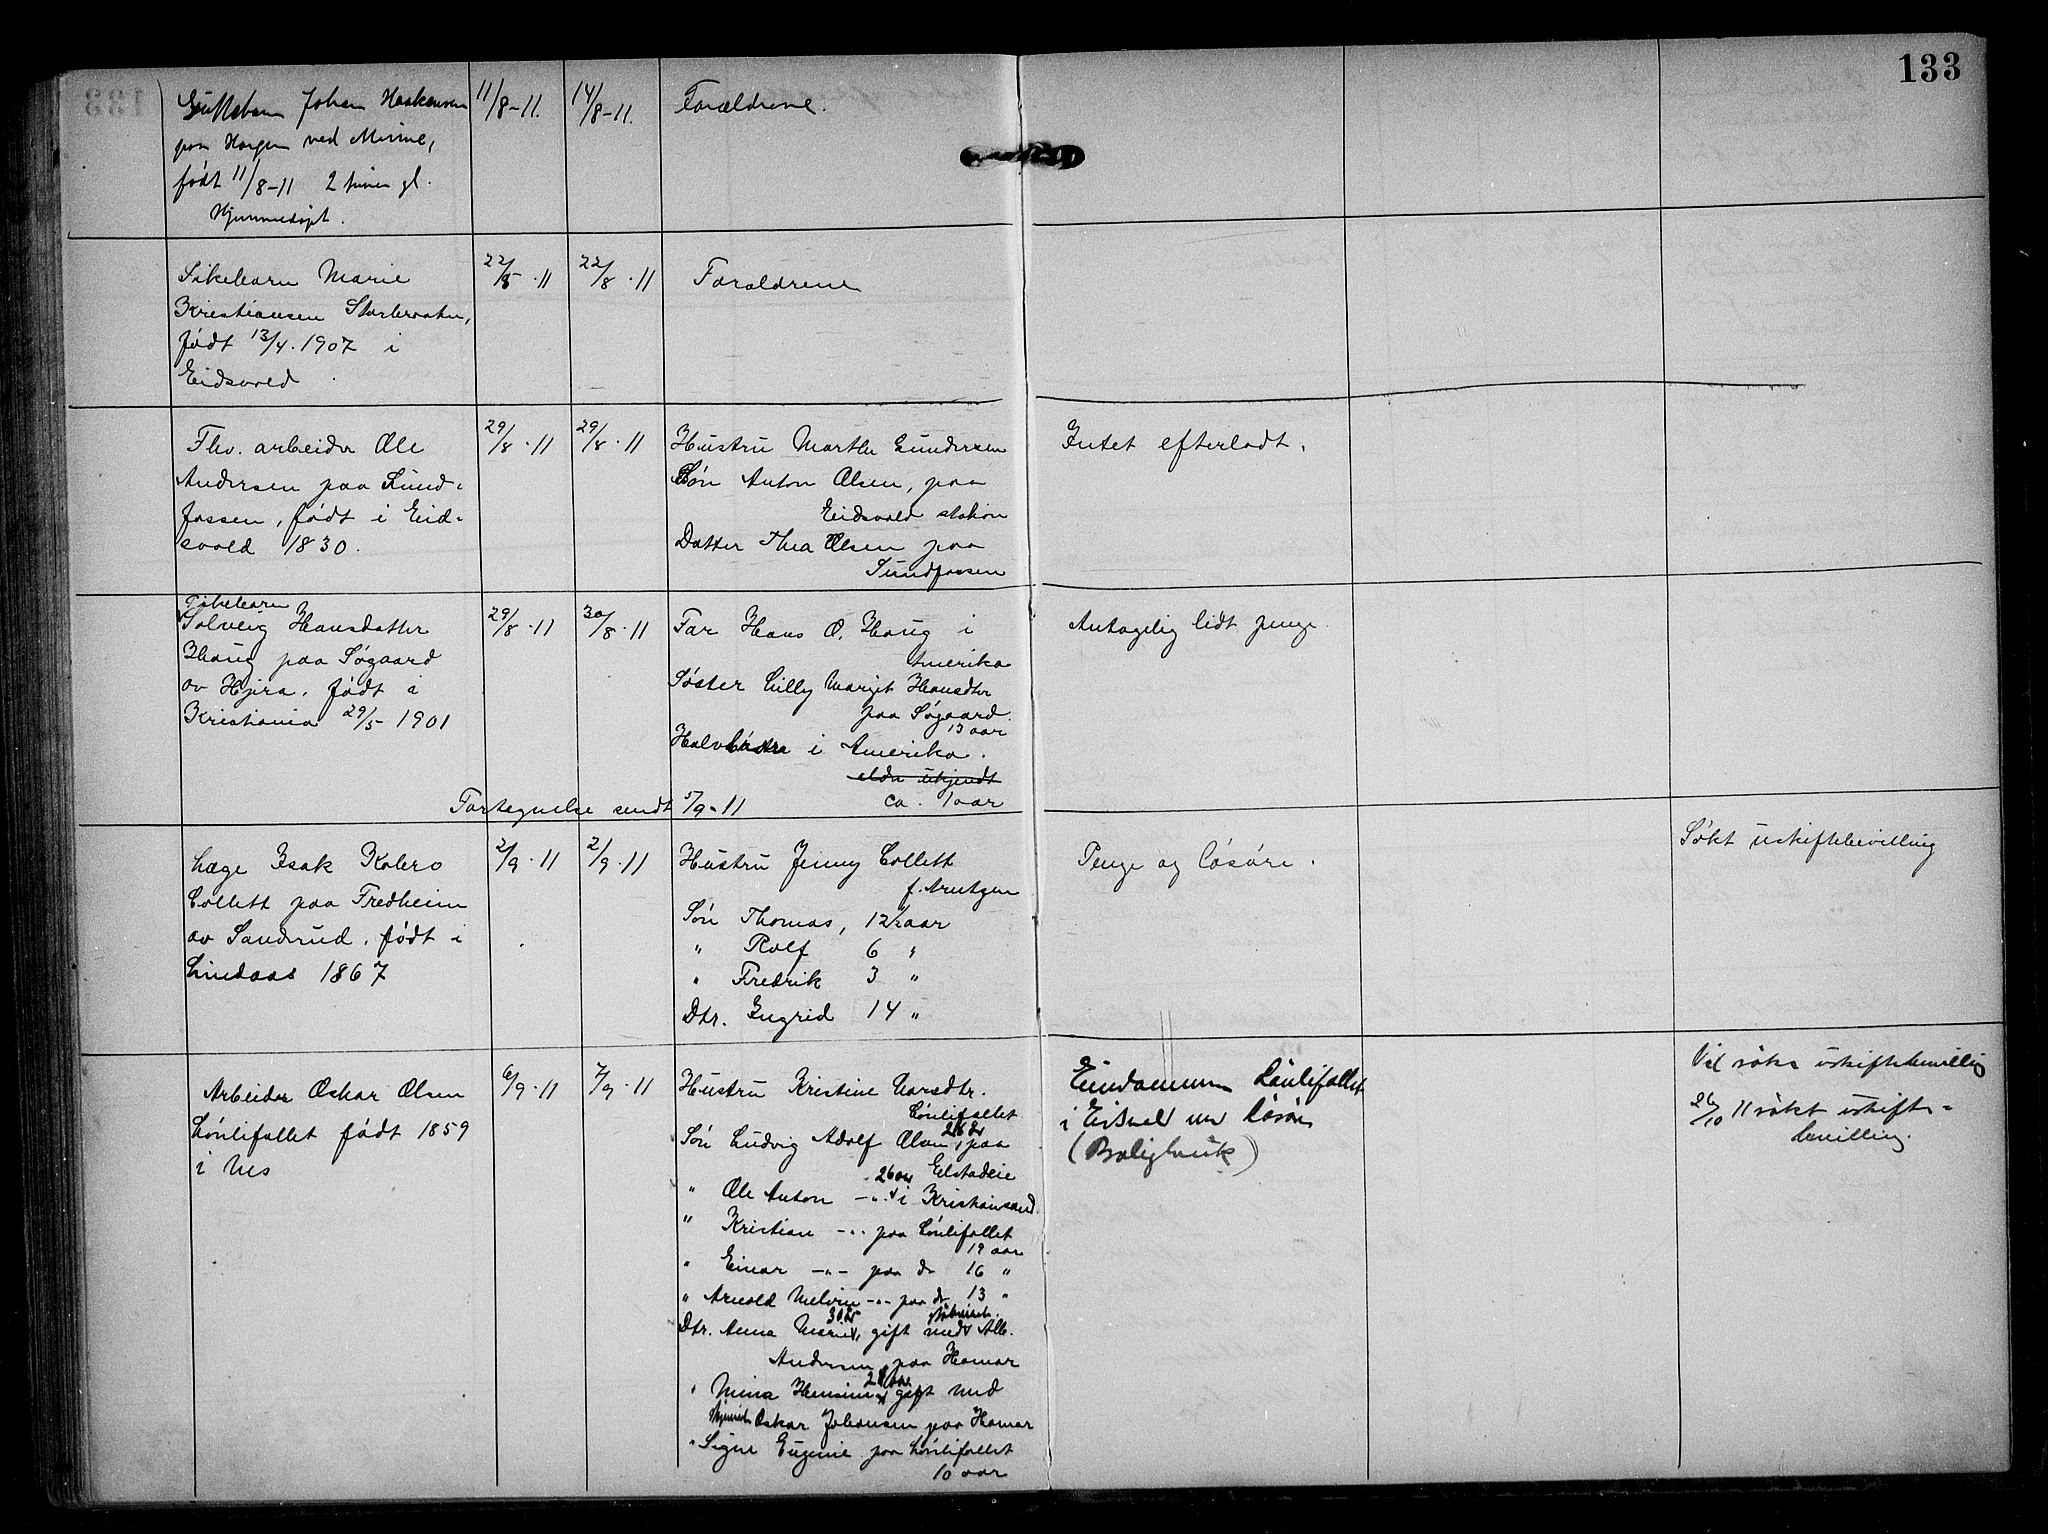 133
Guttebarn Johan Haakensen
paa Horgen ved Minne,
født 11/8-11 2 timer gl.
Hjemmedøpt.
11/8-11.
14/8-11.
Forældrene.
Pikebarn Marie
Kristiansen
født 13/4.1907 i
Eidsvold
22/8.11
22/8.11
Forældrene
Fhv. arbeider Ole
Andersen paa Sund-
fossen, født i Eid-
svold 1830.
29/8.11
29/8.11
Hustru Marthe Gundersen
Søn Anton Olsen, paa
Eidsvold station
Datter Thea Olsen paa
Sundfossen
Intet efterladt.
Pikebarn
Solveig Hansdatter
Haug paa Søgaard
av Hjera. født i
Kristiania 29/5 1901
29/8.11
30/8.11
Far Hans O. Haug i
Amerika
Søster Lilly Margit Hansdtr
paa Søgaard.
13 aar
Halvsøster i Amerika.
alder ukjendt
ca. 1 aar
Fortegnelse sendt 5/9-11
Antagelig lidt penge.
Læge Isak Kobro
Collett paa Fredheim
av Sanderud. født i
Lindaas 1867
2/9.11
2/9.11
Hustru Jenny Collett
f. Arntzen
Søn Thomas, 12½ aar
" Rolf 6 "
" Fredrik 3 "
Dtr. Ingrid 14 "
Penge og løsøre.
Søkt uskiftebevilling
Arbeider Oskar Olsen
Lønlifallet født 1859
i Nes
6/9.11
7/9.11
Hustru Kristine Larsdtr.
Lønlifallet
Søn Ludvig Adolf Olsen, paa
" Ole Anton -"- i Kristiansand.
26 aar
" Kristian -"- paa Lønlifallet
19 aar
" Einar -"- paa do 16 "
" Arnold Melvin -"- paa do 13 "
Dtr. Anna Marie, gift med Alb.
Andersen paa Hamar
" Mina gift med
Oskar Johansen paa Hamar
" Signe Eugenie paa Lønlifallet
10 aar
Eiendommen Lønlifallet
i Eidsvol og løsøre
(Boligbruk)
Vil søke uskiftebevilling
26/10 11 søkt uskifte-
bevilling.